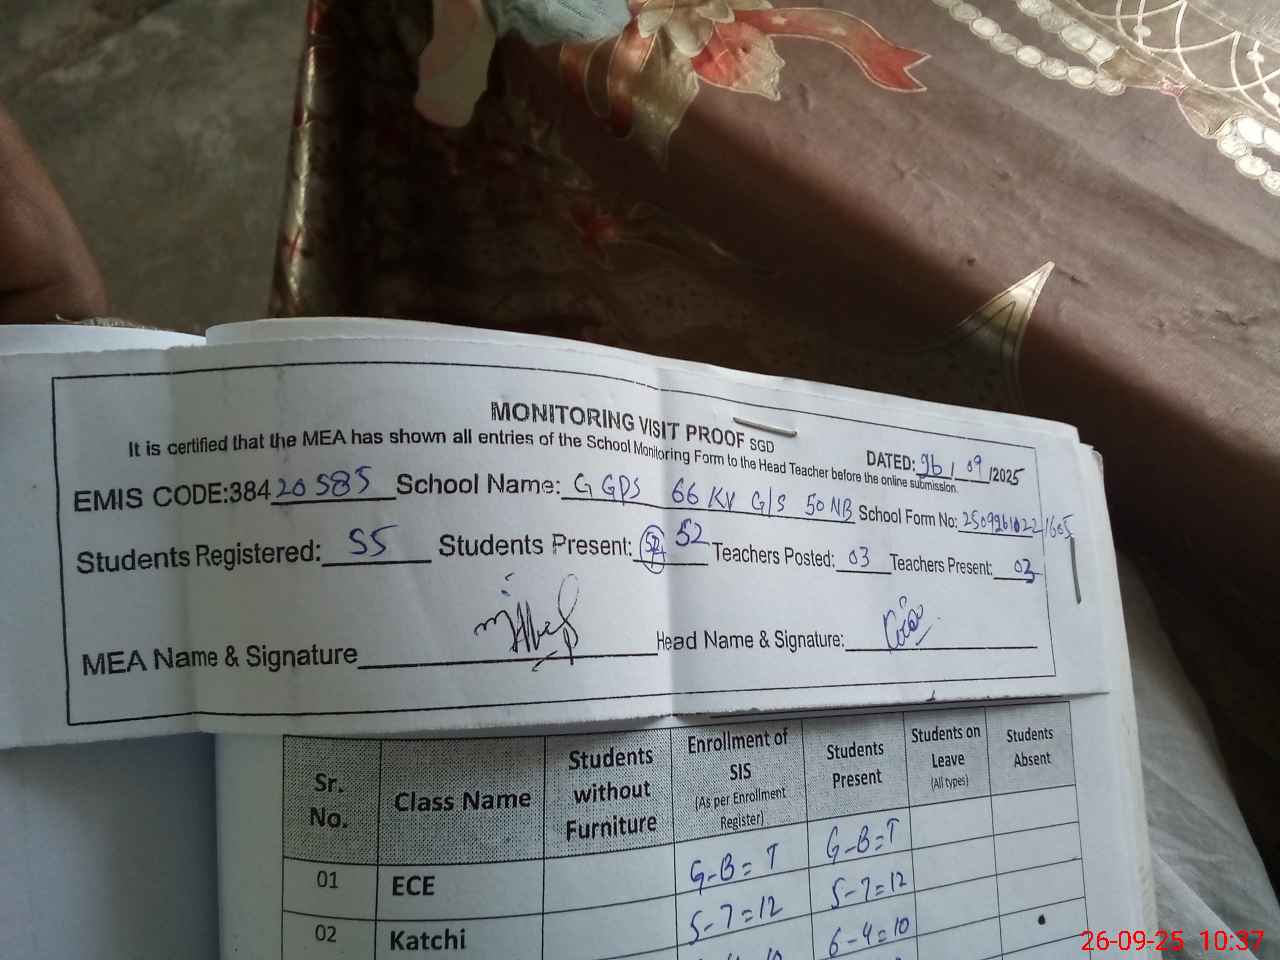 MONITORING VISIT PROOF SGD
It is certified that the MEA has shown all entries of the School Monitoring Form to the Head Teacher before the online submission.
DATED: 26/09/2025
EMIS CODE:384 20585 School Name: G GPS 66 KV G/S 50 NB School Form No:
Students Registered: 55 Students Present: 52 52 Teachers Posted: 03 Teachers Present: 03
MEA Name & Signature Head Name & Signature:
Sr. No. Class Name Students without Furniture Enrollment of SIS (As per Enrollment Register) Students Present Students on Leave (All types) Students Absent
G-B=T G-B=T
01 ECE 5-7=12 5-7=12
02 Katchi 6-4=10
26-09-25 10:37